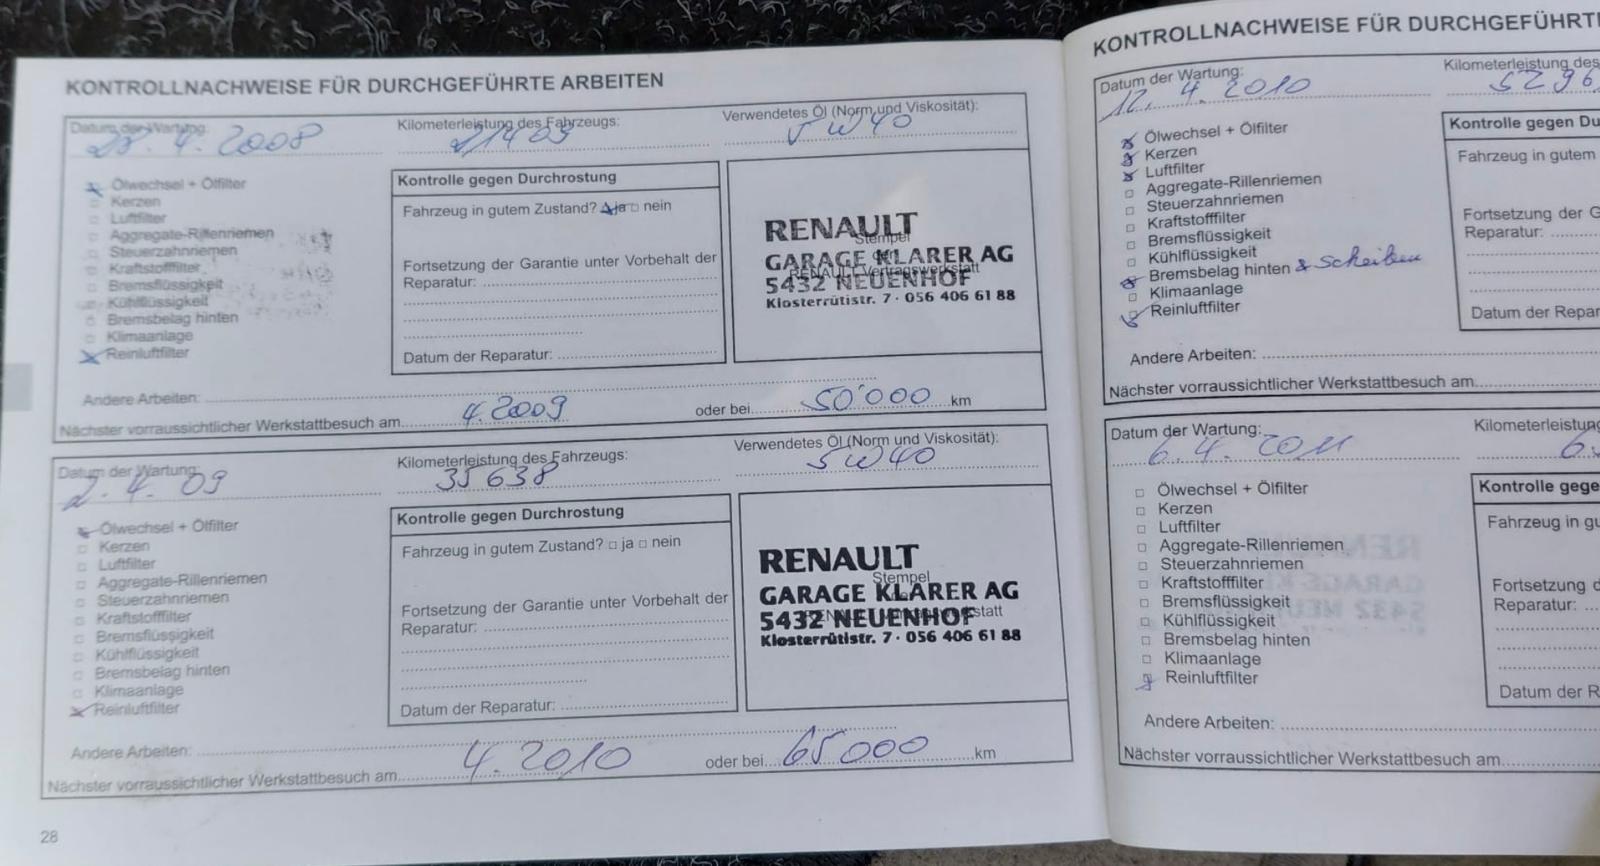 KONTROLLNACHWEISE FÜR DURCHGEFÜHRTE ARBEITEN
Datum der Wartung: Kilometerleistung des Fahrzeugs: Verwendetes Öl (Norm und Viskosität):
4. 2008 21403 5W40
Ölwechsel + Ölfilter
Kerzen
Luftfilter
Aggregate-Rillenriemen
Steuerzahnriemen
Kraftstofffilter
Bremsflüssigkeit
Kühlflüssigkeit
Bremsbelag hinten
Klimaanlage
Reinluftfilter
Kontrolle gegen Durchrostung
Fahrzeug in gutem Zustand? ja nein
Fortsetzung der Garantie unter Vorbehalt der
Reparatur:
Datum der Reparatur:
Stempel
der
RENAULT Vertragswerkstatt
RENAULT
GARAGE KLARER AG
5432 NEUENHOF
Klosterrütistr. 7 · 056 406 61 88
Andere Arbeiten:
Nächster vorraussichtlicher Werkstattbesuch am 4.2009 oder bei 50'000 km
Datum der Wartung: Kilometerleistung des Fahrzeugs: Verwendetes Öl (Norm und Viskosität):
2. 4. 09 35638 5W40
Ölwechsel + Ölfilter
Kerzen
Luftfilter
Aggregate-Rillenriemen
Steuerzahnriemen
Kraftstofffilter
Bremsflüssigkeit
Kühlflüssigkeit
Bremsbelag hinten
Klimaanlage
Reinluftfilter
Kontrolle gegen Durchrostung
Fahrzeug in gutem Zustand? ja nein
Fortsetzung der Garantie unter Vorbehalt der
Reparatur:
Datum der Reparatur:
Stempel
RENAULT
GARAGE KLARER AG
5432 NEUENHOF
Klosterrütistr. 7 · 056 406 61 88
Andere Arbeiten:
Nächster vorraussichtlicher Werkstattbesuch am 4. 2010 oder bei 65000 km
28
KONTROLLNACHWEISE FÜR DURCHGEFÜHRT
Datum der Wartung: Kilometerleistung des
12. 4. 2010 5296
Ölwechsel + Ölfilter
Kerzen
Luftfilter
Aggregate-Rillenriemen
Steuerzahnriemen
Kraftstofffilter
Bremsflüssigkeit
Kühlflüssigkeit
Bremsbelag hinten & Scheiben
Klimaanlage
Reinluftfilter
Kontrolle gegen Du
Fahrzeug in gutem
Fortsetzung der G
Reparatur:
Datum der Repar
Andere Arbeiten:
Nächster vorraussichtlicher Werkstattbesuch am
Datum der Wartung: Kilometerleistung
6. 4. 2011 6
Ölwechsel + Ölfilter
Kerzen
Luftfilter
Aggregate-Rillenriemen
Steuerzahnriemen
Kraftstofffilter
Bremsflüssigkeit
Kühlflüssigkeit
Bremsbelag hinten
Klimaanlage
Reinluftfilter
Kontrolle gege
Fahrzeug in gu
Fortsetzung d
Reparatur:
Datum der R
Andere Arbeiten:
Nächster vorraussichtlicher Werkstattbesuch am